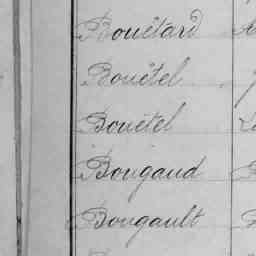 Bouëtard
Bouëtel
Bouëtel
Bougaud
Bougault